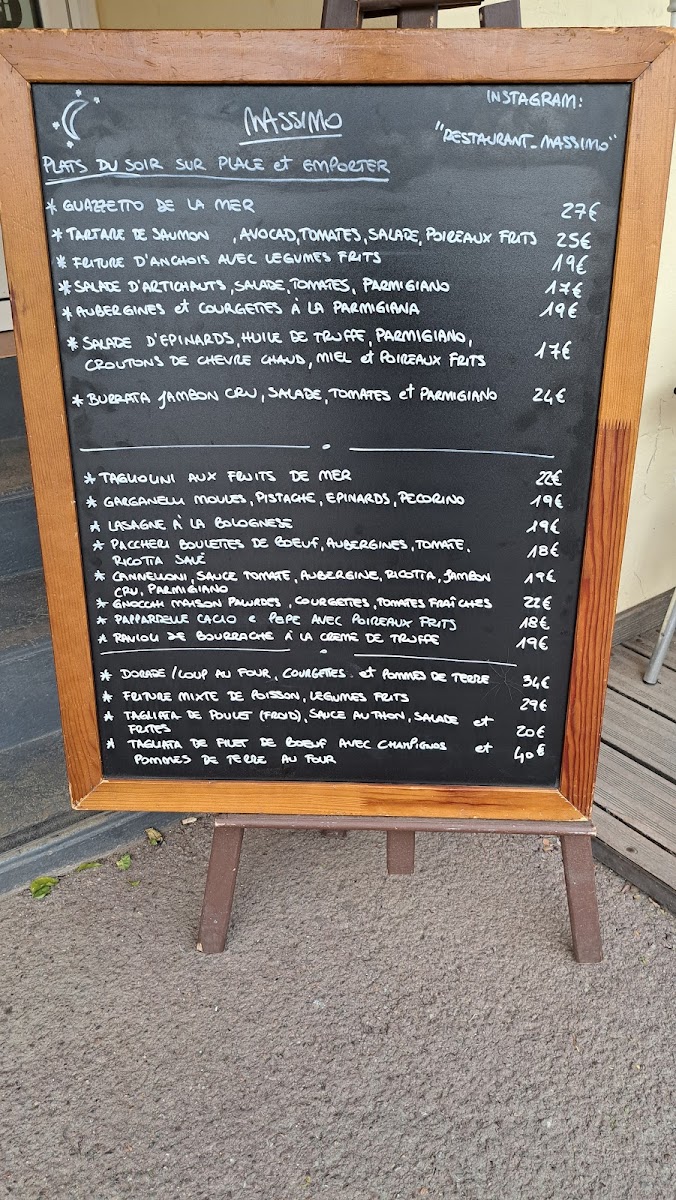 INSTAGRAM:
MASSIMO
"RESTAURANT_MASSIMO"
PLATS DU SOIR SUR PLACE et EMPORTER
* GUAZZETTO DE LA MER 27€
* TARTARE DE SAUMON , AVOCAD, TOMATES, SALADE, POIREAUX FRITS 25€
* FRITURE D'ANCHOIS AVEC LEGUMES FRITS 19€
* SALADE D'ARTICHAUTS, SALADE, TOMATES, PARMIGIANO 17€
* AUBERGINES et COURGETTES À LA PARMIGIANA 19€
* SALADE D'EPINARDS, HUILE DE TRUFFE, PARMIGIANO,
CROUTONS DE CHEVRE CHAUD, MIEL et POIREAUX FRITS 17€
* BURRATA JAMBON CRU, SALADE, TOMATES et PARMIGIANO 24€
* TAGLIOLINI AUX FRUITS DE MER 22€
* GARGANELLI MOULES, PISTACHE, EPINARDS, PECORINO 19€
* LASAGNE À LA BOLOGNESE 19€
* PACCHERI BOULETTES DE BOEUF, AUBERGINES, TOMATE, 18€
RICOTTA SALÉ
* CANNELLONI, SAUCE TOMATE, AUBERGINE, RICOTTA, JAMBON 19€
CRU, PARMIGIANO
* GNOCCHI MAISON PALURDES, COURGETTES, TOMATES FRAÎCHES 22€
* PAPPARDELLE CACIO e PEPE AVEC POIREAUX FRITS 18€
* RAVIOLI DE BOURRACHE À LA CREME DE TRUFFE 19€
* DORADE/LOUP AU FOUR, COURGETTES. et POMMES DE TERRE 34€
* FRITURE MIXTE DE POISSON, LEGUMES FRITS 29€
* TAGLIATA DE POULET (FROID), SAUCE AU THON, SALADE et
FRITES 20€
* TAGLIATA DE FILET DE BOEUF AVEC CHAMPIGNOS et 40€
POMMES DE TERRE AU FOUR